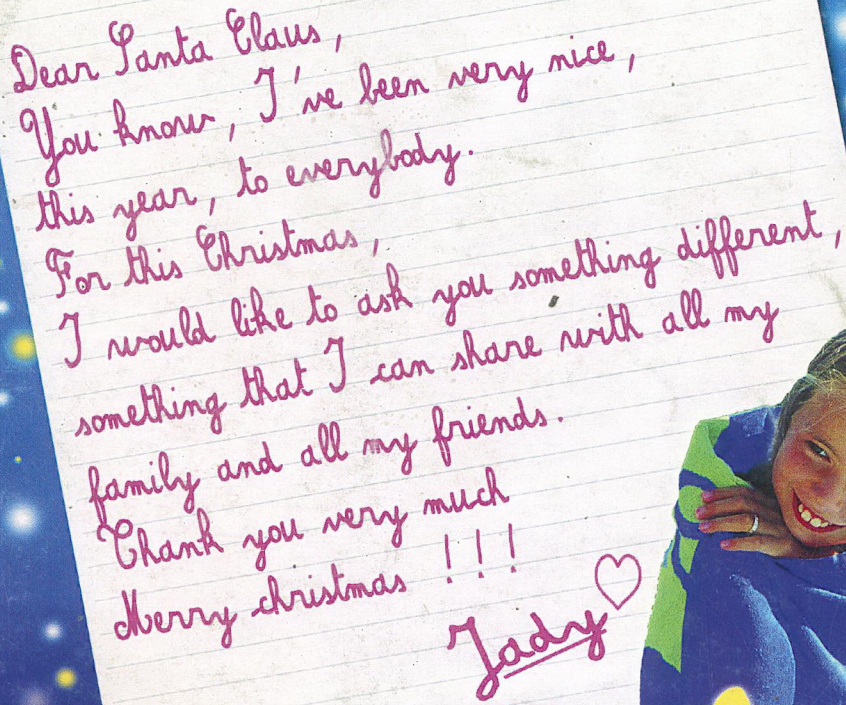 Dear Santa Claus,
You know, I've been very nice,
this year, to everybody.
For this Christmas,
I would like to ask you something different,
something that I can share with all my
family and all my friends.
Thank you very much
Merry christmas !!!
Jady